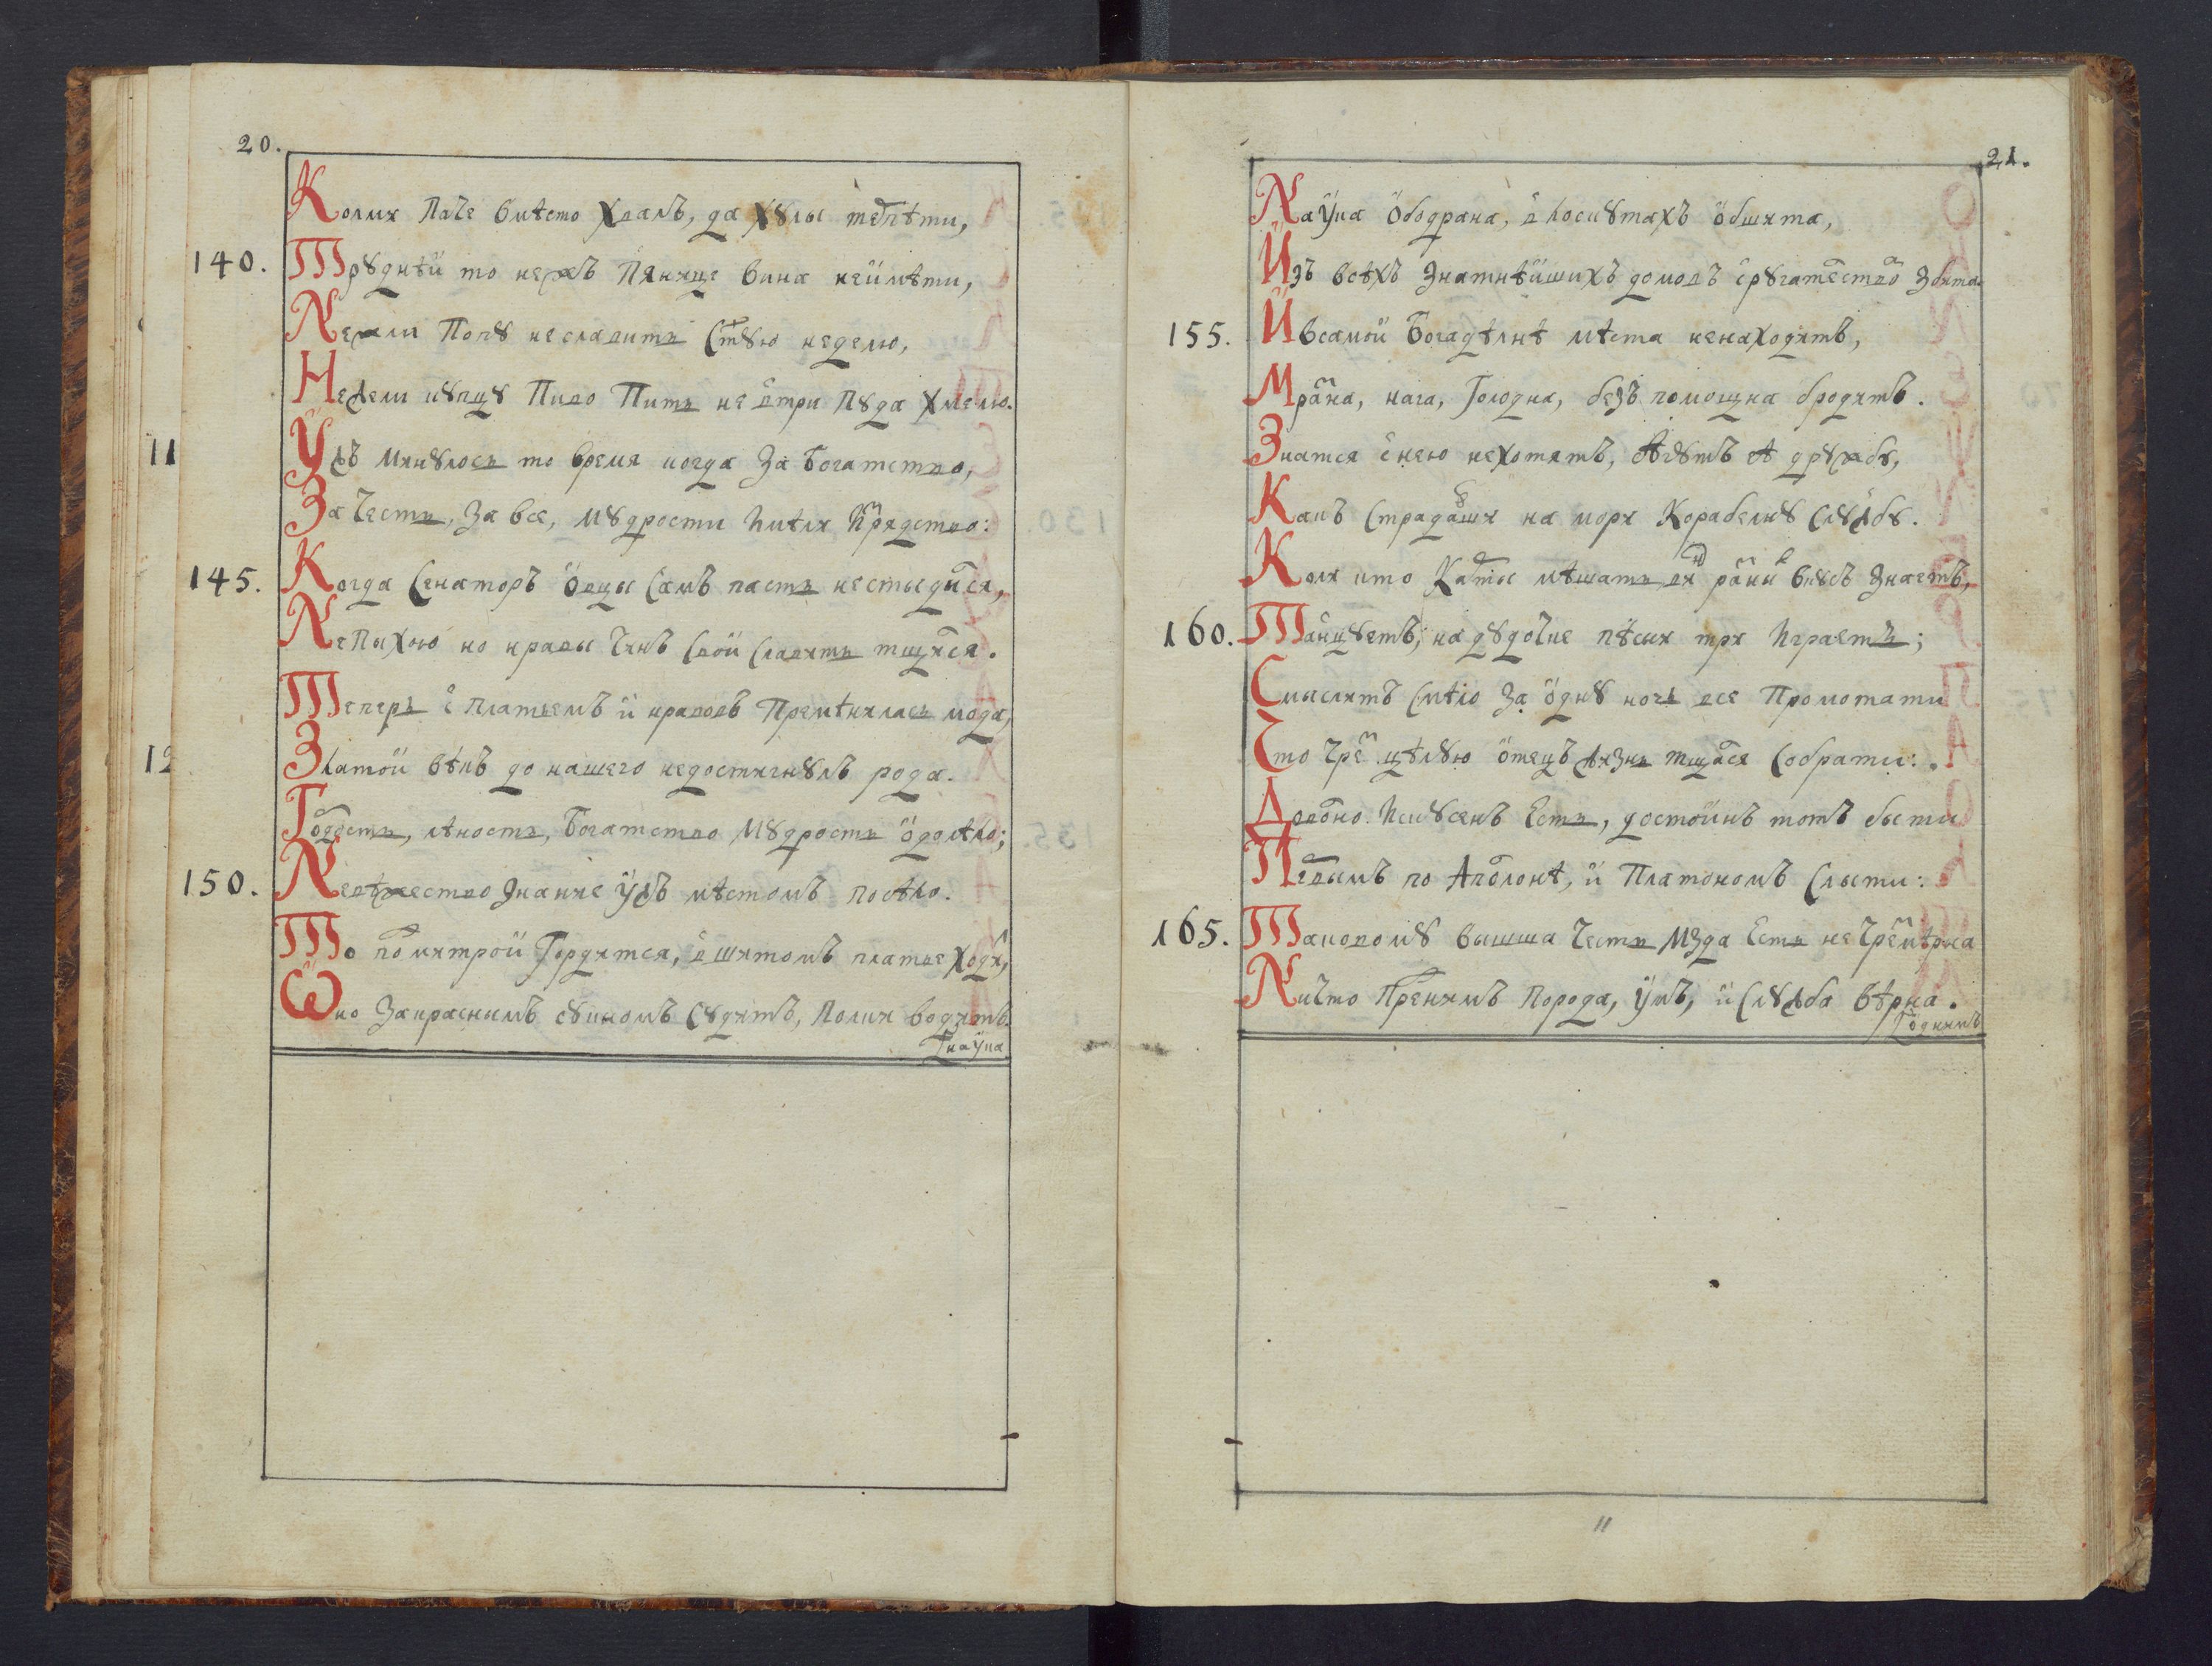 20.
Колми паче вмѣсто хвалъ, да хꙋлы терпѣти,
140. Трꙋднѣй то нежъ пянице вина не имѣти,
Нежли попꙋ не славить с̃тꙋю неделю,
Нежели кꙋпцꙋ пиво пить не в три пꙋда хмелю.
Ужъ минꙋлось то время когда за богатство,
За честь, за все, мꙋдрости имѣли изрядство:
145. Когда сенаторъ овцы самъ пасть не стыдился,
Не пыхою но нравы чинъ свой славить тщился.
Теперь с платьемъ и нравовъ премѣнилась мода,
Златой вѣкъ до нашего не достигнꙋлъ рода.
Гордость, лѣность, богатство мꙋдрость одолѣло;
150. Невѣжество знание ужъ мѣстомъ посѣло.
То под митрой гордится, в шитомъ платье ходи,
Оно за краснымъ сꙋкномъ сꙋдитъ, полки водитъ.
наука
21.
Наука ободрана, в лоскꙋтахъ обшита,
Изъ всѣхъ знатнѣйшихъ домовъ с рꙋгательствомъ збита.
155. И в самой богадѣлнѣ мѣста не находитъ,
Мразна, нага, голодна, безъ помощна бродитъ.
Знатся с нею не хотятъ, бѣгꙋтъ ея дрꙋжбы,
Какъ страдавши на мори корабелнꙋ слꙋжбꙋ.
Коли кто карты мѣшать разны винъ вкꙋсъ знаетъ,
160. Танцꙋетъ, на дꙋдочке пѣсни три играетъ;
Смыслитъ смѣло за однꙋ ночь все промотати
Что чрез цѣлꙋю отецъ жизнь тщился собрати:
Доволно искꙋсенъ есть, достоинъ тотъ быти
Первымъ по Аполонѣ, и Платономъ слыти:
165. Таковомꙋ вышша честь мзда есть не чрезмѣрна
Ничто пред нимъ порода, умъ, и слꙋжба вѣрна.
Г однимъ
11